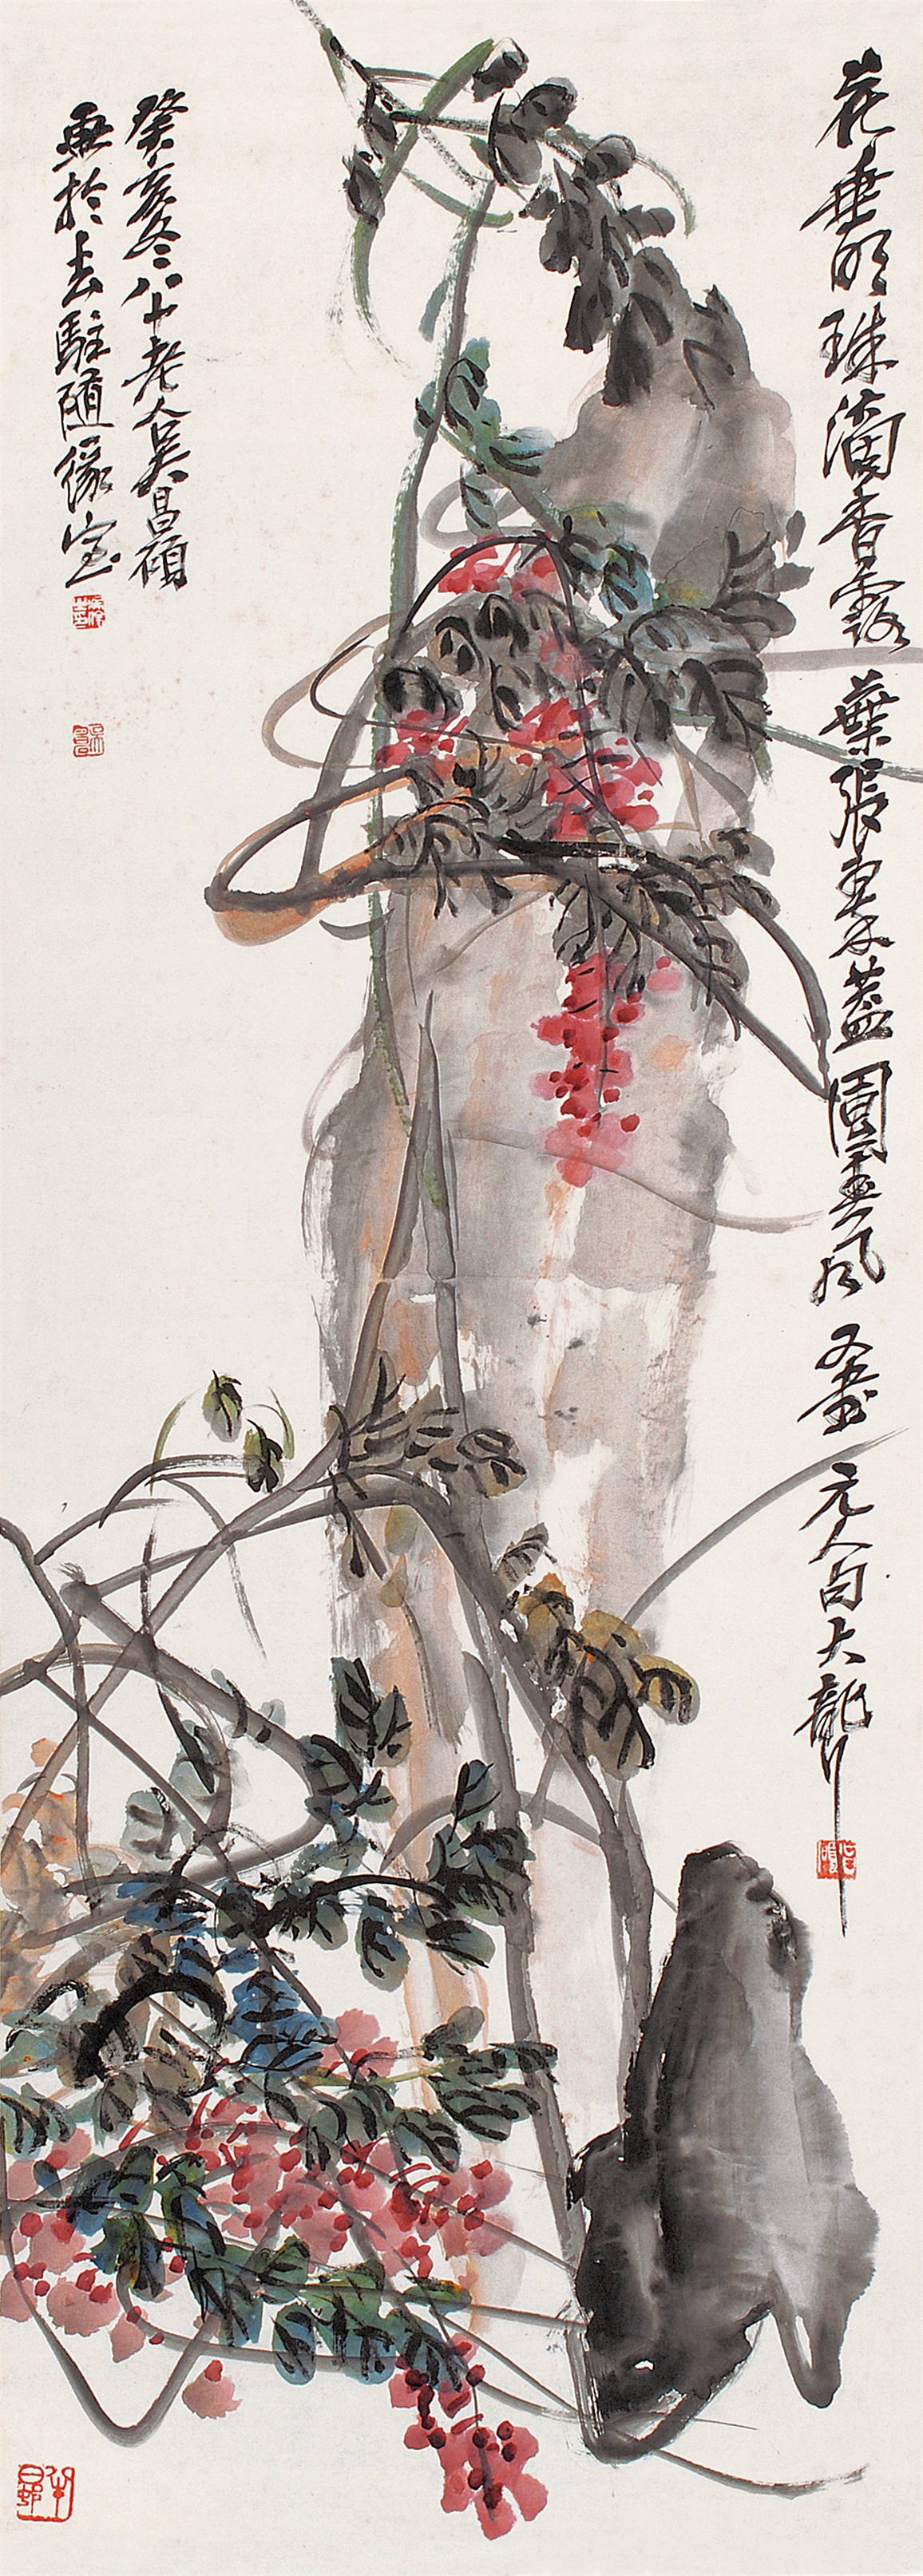 花垂明珠滴香露 葉張翠蓋團風 元人句 大聾
癸亥冬八十老人吳昌碩
畫於去駐隨緣室